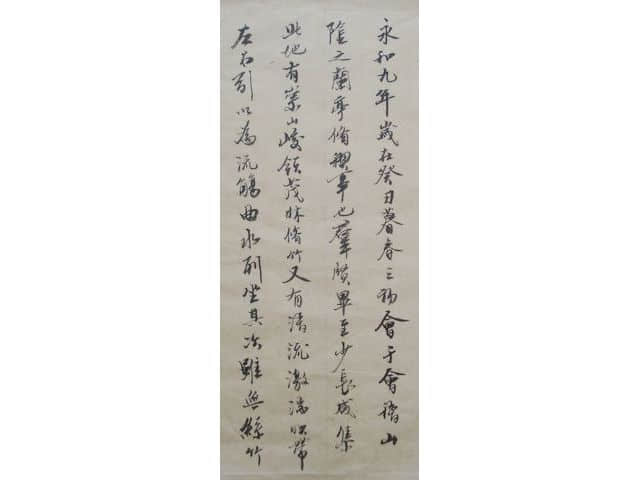 永和九年歲在癸丑暮春之初會于會稽山
陰之蘭亭脩禊事也群賢畢至少長咸集
此地有崇山峻領茂林脩竹又有清流激湍映帶
左右引以為流觴曲水列坐其次雖無絲竹